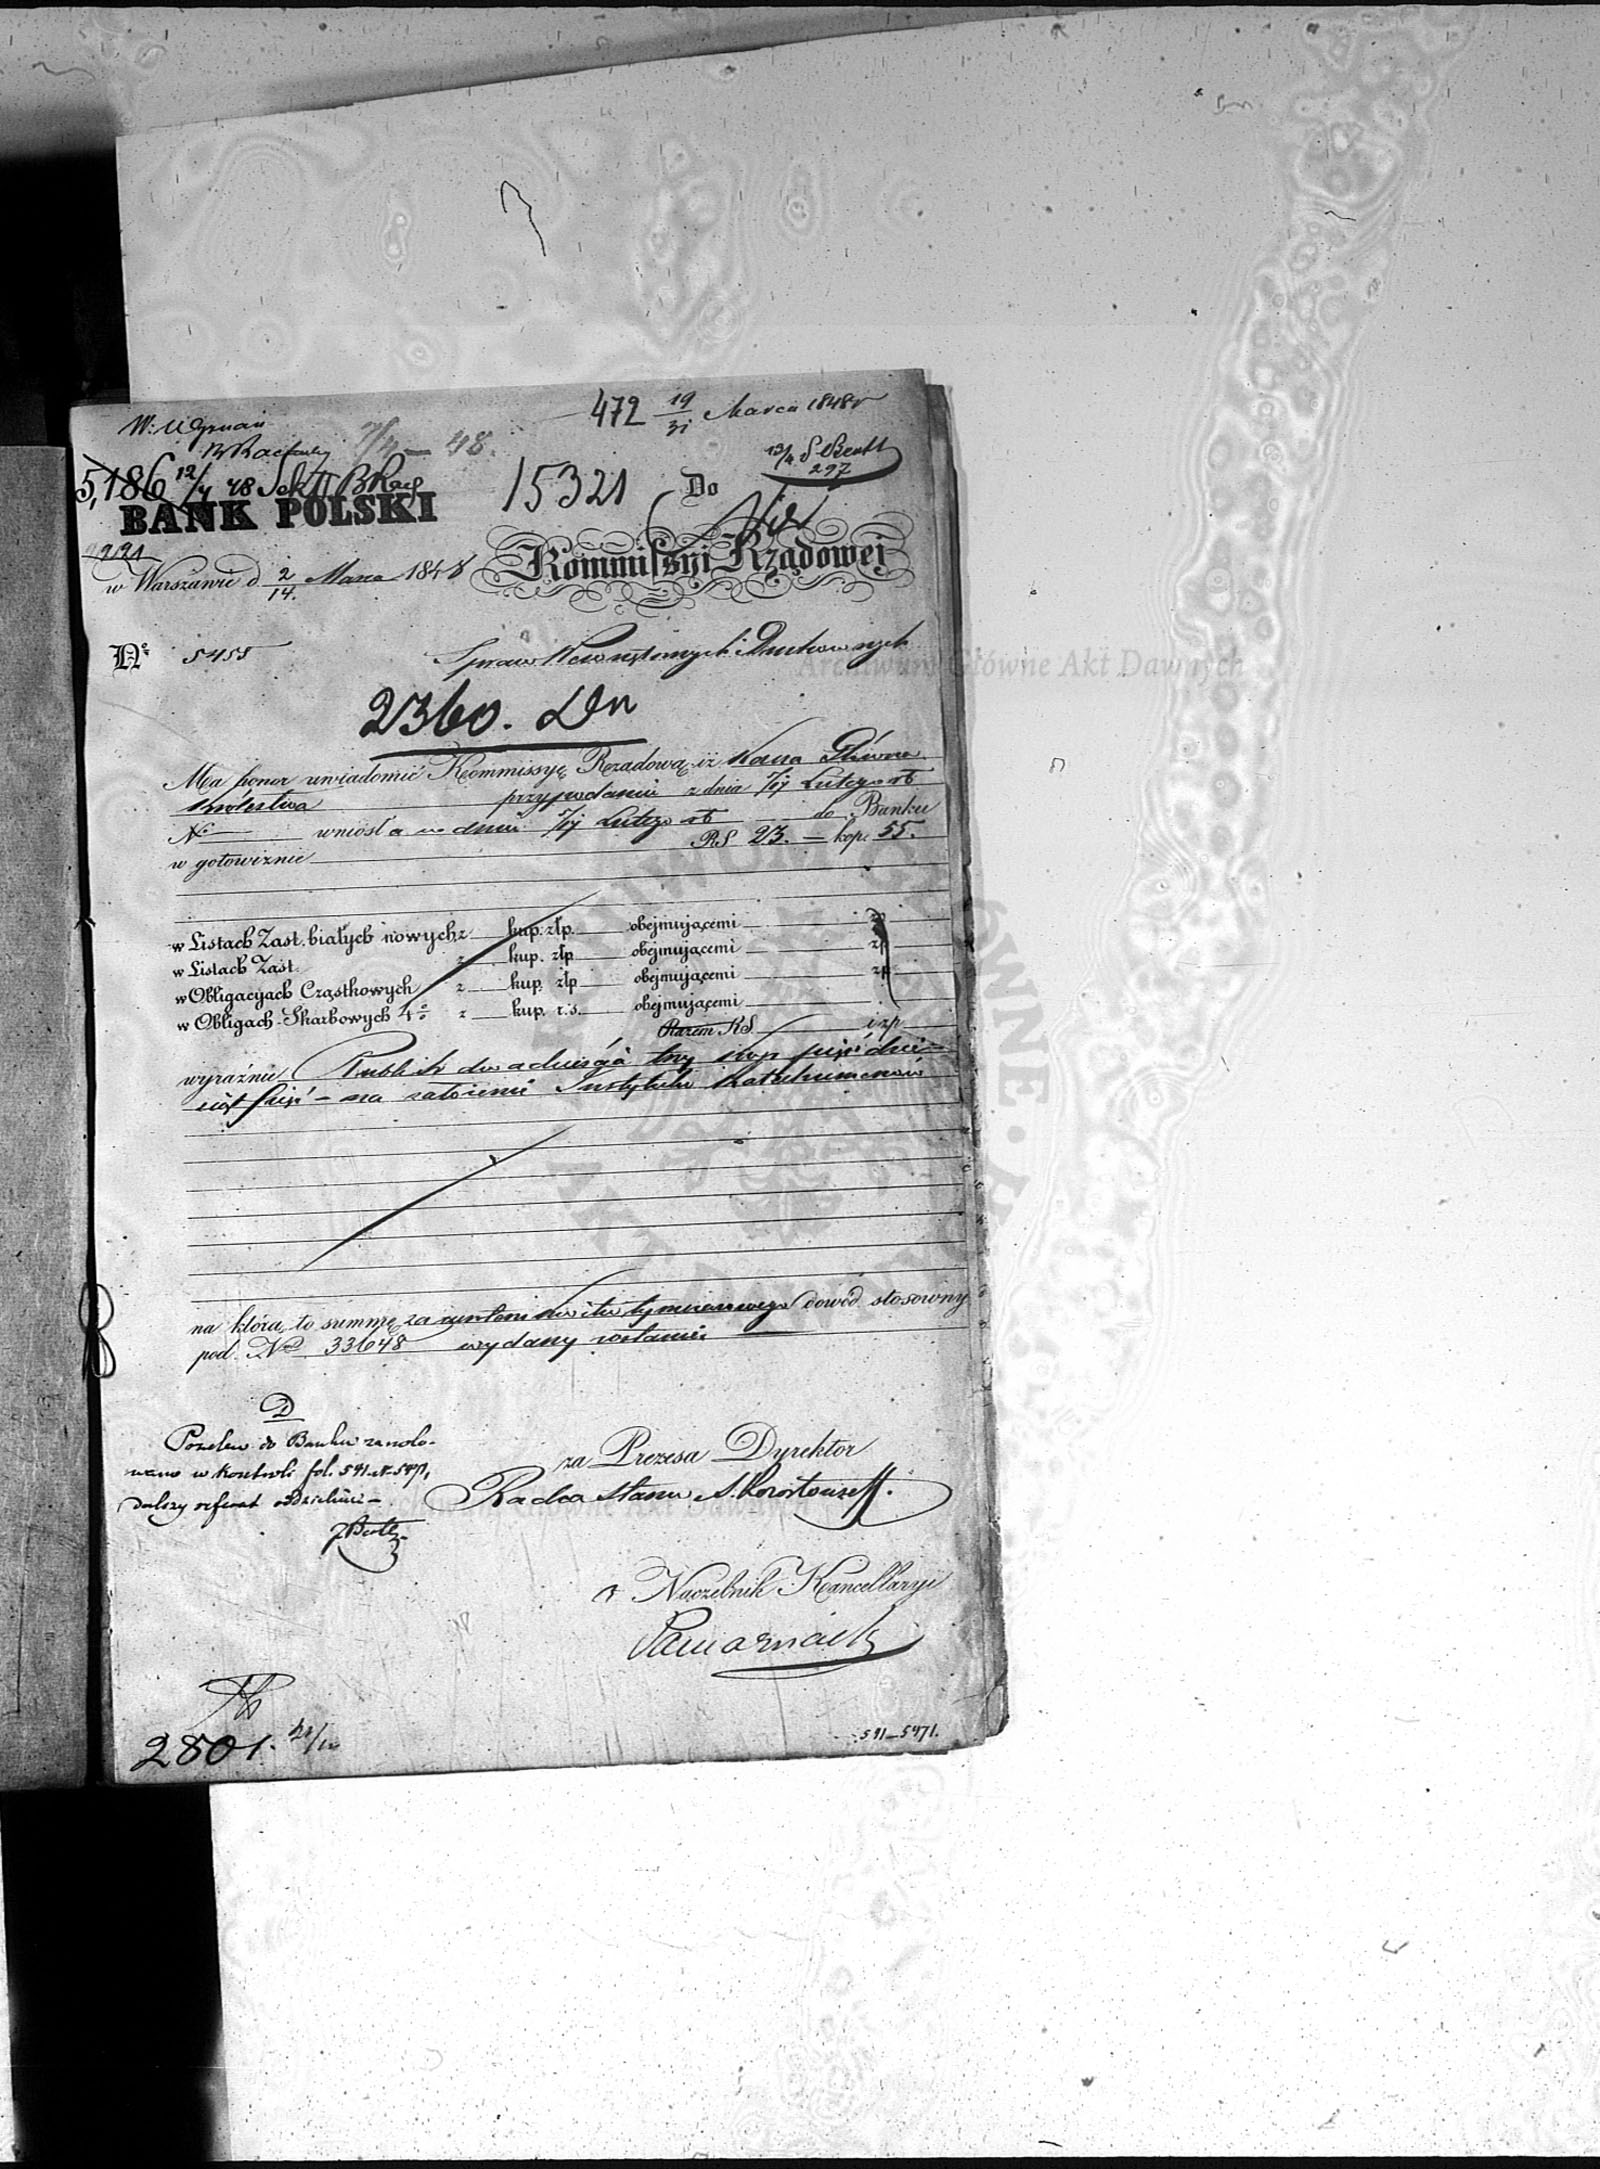 472 19/31 Marca 1848 r
W: Ugruań
7/4 — 48.
13/4 S Bentt
297
5,186 12/4 48 Sekt II
15321
Do
BANK POLSKI
Kommissyi Rządowej
w Warszawie d. 2/14. Marca 1848
No 5455
Spraw Wewnętrznych i Duchownych
Archiwum Główne Akt Dawnych
2360. Dn
Ma honor uwiadomić Kommissyę Rządową, iż Kassa Główna
Królestwa przy podaniu z dnia Lutego rb
No wniosła w dniu Lutego rb do Banku
w gotowiźnie RS 23. — kop. 55.
w Listach Zast. białych nowych z kup. złp. obejmującemi zp
w Listach Zast. z kup. złp obejmującemi zp
w Obligacyach Cząstkowych z kup. złp obejmującemi zp
w Obligach Skarbowych 4% z kup. r.s. obejmującemi
Razem RS. i zp
wyraźnie Rubli sr dwadzieścia trzy kop pięćdzie-
siąt pięć — na założenie Instytutu Katechumenów
na którą to summę, za zwrotem kwitu tymczasowego dowód stosowny
pod No 33648 wydany zostanie
D
Przelew do Banku zanoto-
wano w kontroli fol. 541 et 5471,
dalszy referat oddzielnie —
za Prezesa Dyrektor
Radca Stanu
Naczelnik Kancellaryi
2801.
541—5471.